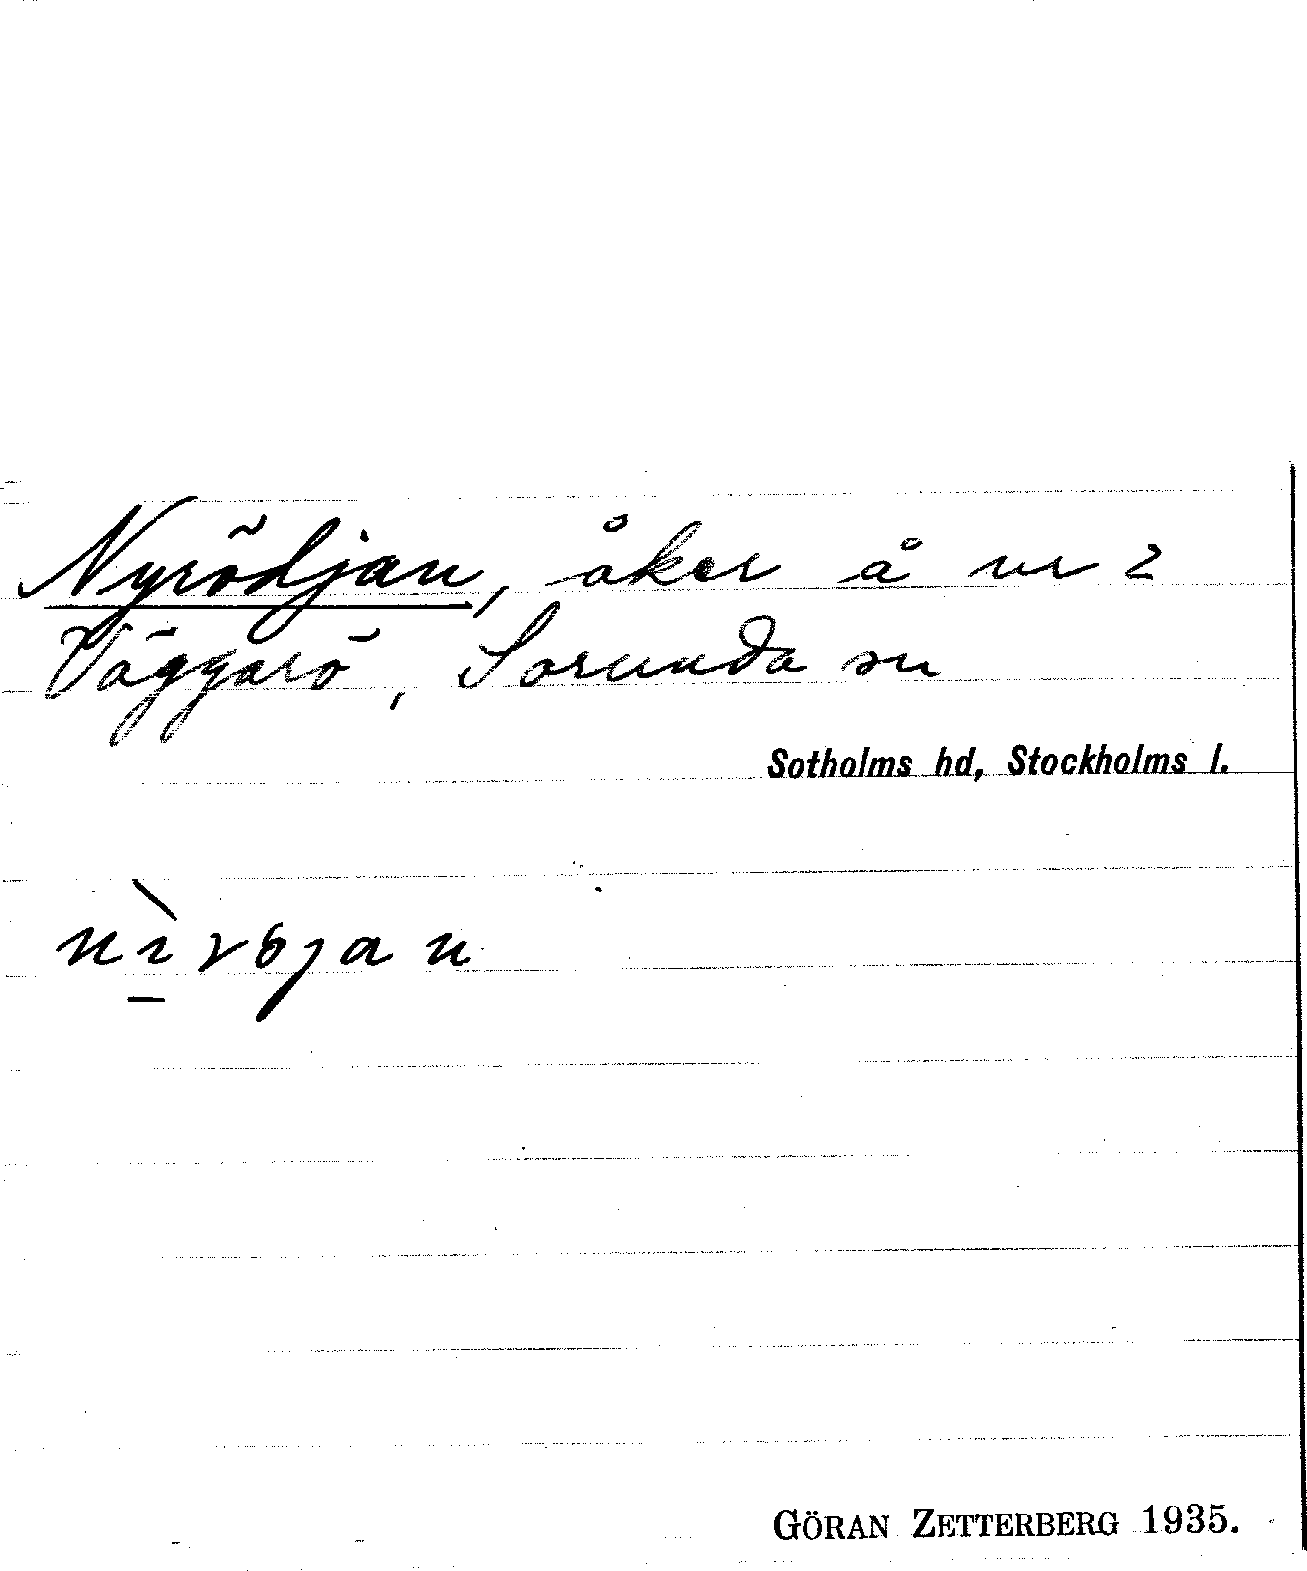 Nyrödjan, åker å nr 2
Väggarö, Sorunda sn
Sotholms hd, Stockholms l.
GÖRAN ZETTERBERG 1935.